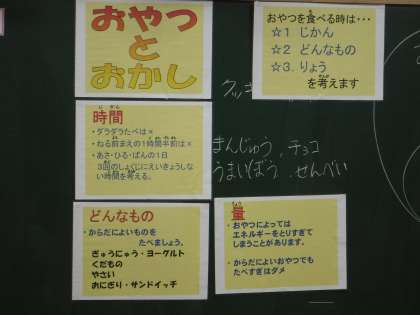 おやつ
と
おかし
おやつを食べる時は…
☆1 じかん
☆2 どんなもの
☆3. りょう
を考えます
クッキ
時間
・ダラダラたべは×
・ねる前まえの1時間半前は×
・あさ・ひる・ばんの1日
3回のしょくじにえいきょうしな
い時間を考える。
まんじゅう、チョコ
うまいぼう、せんべい
どんなもの
・からだによいものを
たべましょう。
ぎゅうにゅう・ヨーグルト
くだもの
やさい
おにぎり・サンドイッチ
量
・おやつによっては
エネルギーをとりすぎて
しまうことがあります。
・からだによいおやつでも
たべすぎはダメ